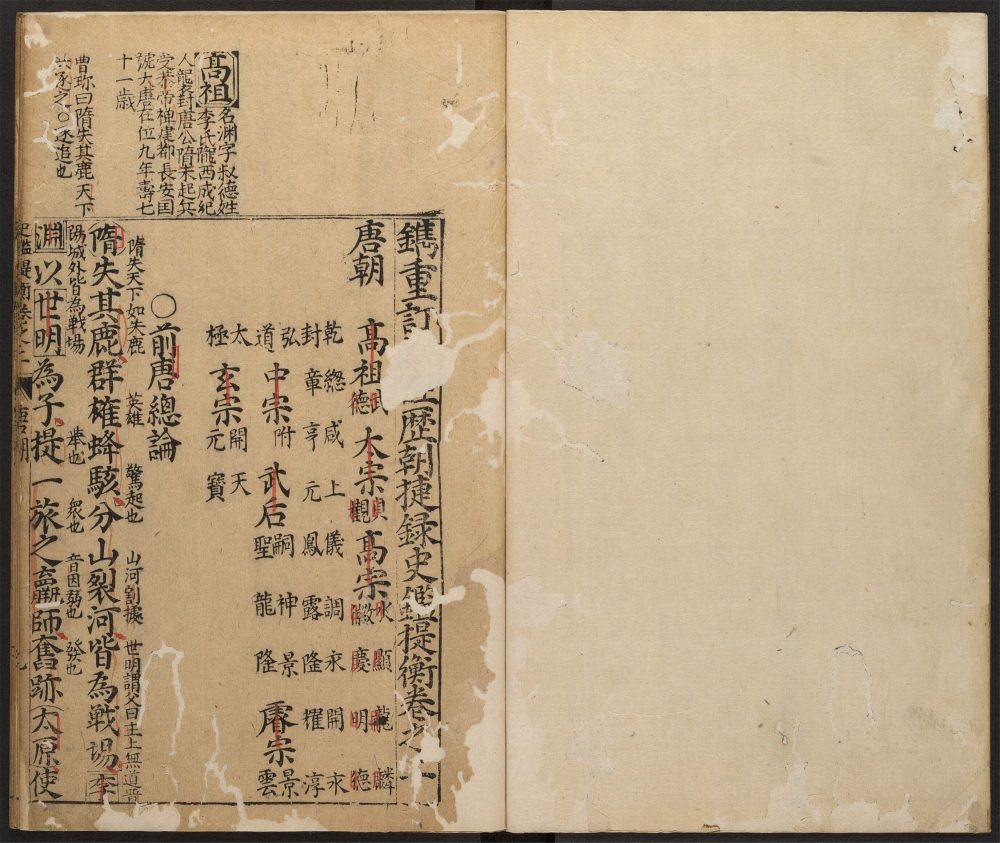 鐫重訂歷朝捷録史鑑提衡卷之
唐朝
高祖 武德 太宗 貞觀 高宗 永徽 顯慶 龍 明 麟德
乾封 總章 咸亨 上元 儀鳳 調露 永隆 開耀 永淳
弘道 中宗 附武后 嗣聖 神龍 景隆 睿宗 景雲
太極 玄宗 開元 天寶
○前唐總論
隋失天下如失鹿 英雄 驚起也 山河割據 世明謂父曰主上無道晉
隋失其鹿群雄蜂駭分山裂河皆為戰場李
陽城外皆為戰場 舉也 衆也 音因弱也 發也
淵以世明為子提一旅之羸師奮跡太原使
高祖
名渊字叔德姓
李氏隴西成紀
人襲封唐公隋末起兵
受恭帝禅建都長安国
號大唐在位九年壽七
十一歳
曹珎曰隋失其鹿天下
共逐之○逐追也